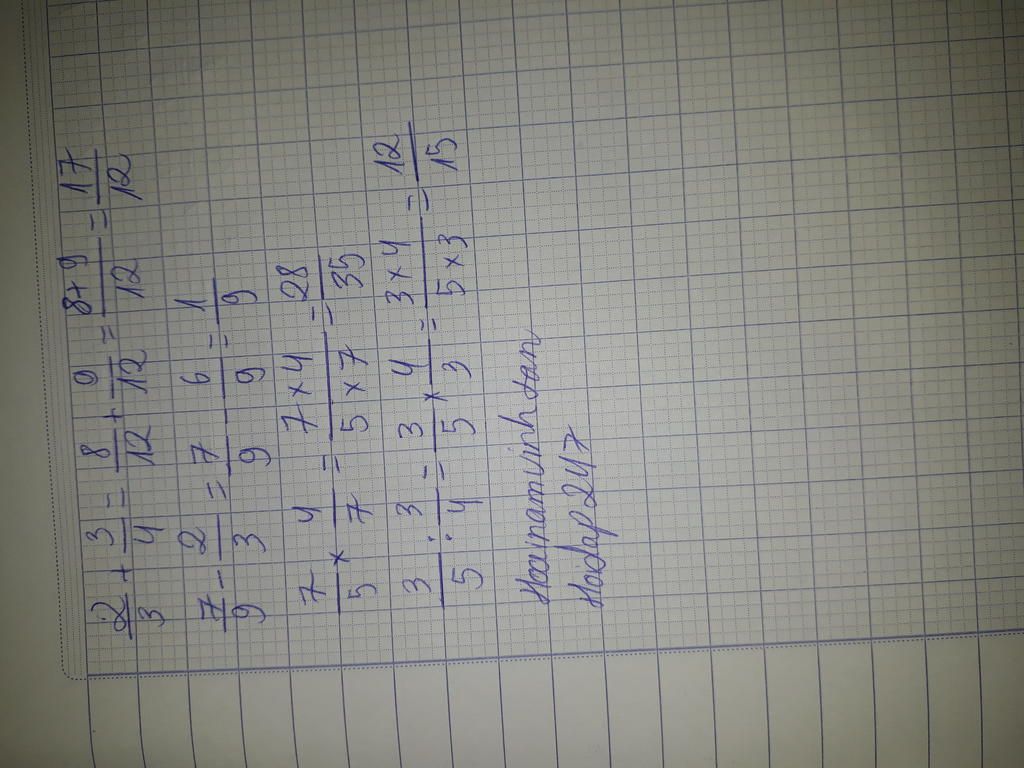 2/3 + 3/4 = 8/12 + 9/12 = 8+9/12 = 17/12
7/9 - 2/3 = 7/9 6/9 = 1/9
7/5 × 4/7 = 7×4/5×7 = 28/35
3/5 : 3/4 = 3/5 × 4/3 = 3×4/5×3 = 12/15
Hoainamvinhtan
Hoidap247